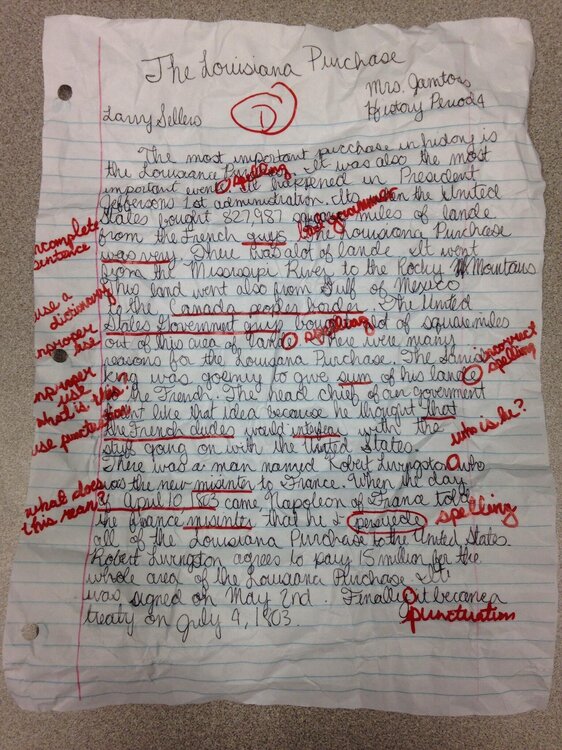 The Louisiana Purchase
Mrs. Jamtois
History Period 4
Larry Sellers
D
The most important purchase in history is
the Louisiana . It was also the most
spelling
important event happened in President
Jeffersons 1st administration. Its when the United
States bought 827,987 miles of lande
bad grammar
from the French guys. The Louisiana Purchase
incomplete sentence
was very. There was alot of lande. It went
from the Mississippi River to the Rocky Mountains
This land went also from Gulf of Mexico
use a dictionary
to the Canada peoples border. The United
States Government guys bought alot of square miles
spelling
improper use
out of this area of lande. There were many
reasons for the Louisiana Purchase. The
incorrect spelling
king was goeiny to give sum of his land
improper use
to the French. The head chief of an government
what is this?
didnt like that idea because he thought that
use punctuation
the French dudes would with the
who is he?
stuff going on with the United States.
There was a man named Robert Livingston who
was the new misinter to France. When the day
what does this mean?
of April 10 1803 came, Napoleon of France told
the finance misinter that he persuede
spelling
all of the Louisiana Purchase to the United States.
Robert Livington agrees to pay 15 million for the
whole area of the Louisiana Purchase. It
was signed on May 2nd. Finally it became a
punctuation
treaty on July 4, 1803.